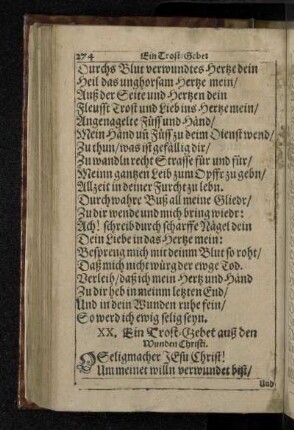 274 Ein Trost-Gebet
Durchs Blut verwundtes Hertze dein
Heil das unghorsam Hertze mein/
Auß der Seite und Hertzen dein
Fleusst Trost und Lieb ins Hertze mein/
Angenagelte Füss und Händ/
Mein Händ uñ Füss zu deim Dienst wend/
Zu thun/ was ist gefällig dir/
Zu wandln recht Strasse für und für/
Meinn gantzen Leib zum Opffr zu gebn/
Allzeit in deiner Furcht zu lebn.
Durch wahre Buß all meine Gliedr/
Zu dir wende und mich bring wiedr:
Ach! schreib durch scharffe Nägel dein
Dein Liebe in das Hertze mein:
Bespreng mich mit deinm Blut so roht/
Daß mich nicht würg der ewge Tod.
Verleih/ daß ich mein Hertz und Händ
Zu dir heb in meinm letzten End/
Und in dein Wunden ruhe fein/
So werd ich ewig selig seyn.
XX. Ein Trost-Gebet auß den
Wunden Christi.
O Seligmacher JEsu Christ!
Um meinet willn verwundet bist/
Und